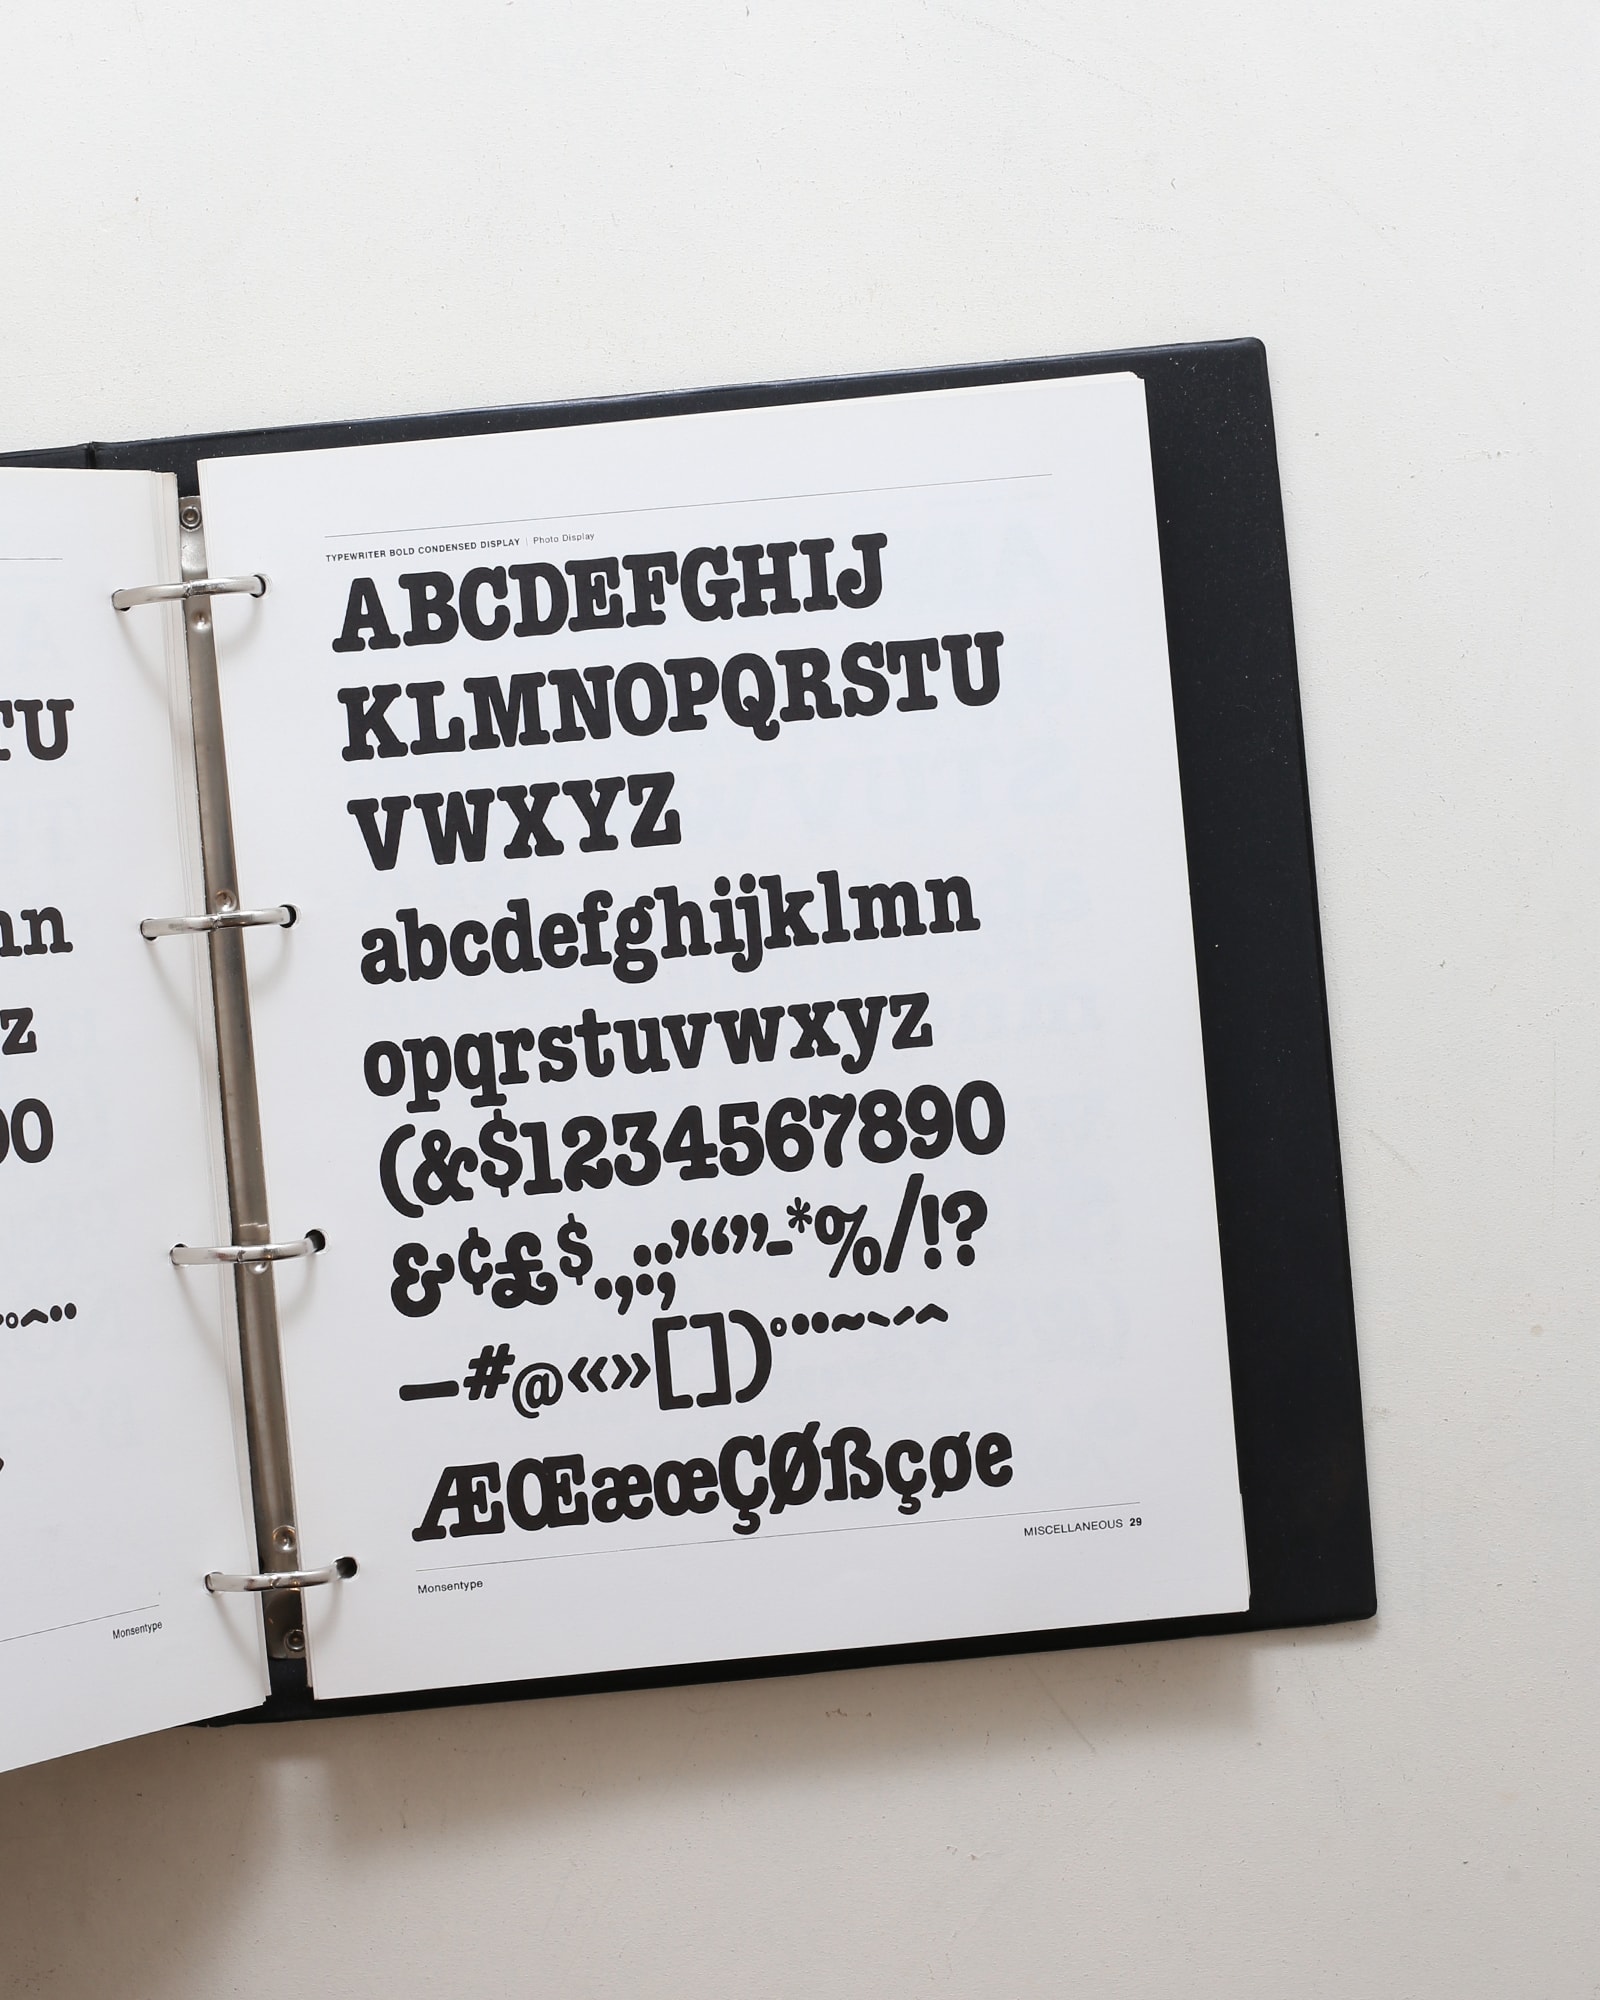 TU
nn
z
90
Monsentype
TYPEWRITER BOLD CONDENSED DISPLAY | Photo Display
ABCDEFGHIJ
KLMNOPQRSTU
VWXYZ
abcdefghijklmn
opqrstuvwxyz
(&$1234567890
&¢£$.,:;’“”-*%/!?
—#@«»[])°¨~`´^
ÆŒæœÇØßçøe
MISCELLANEOUS 29
Monsentype